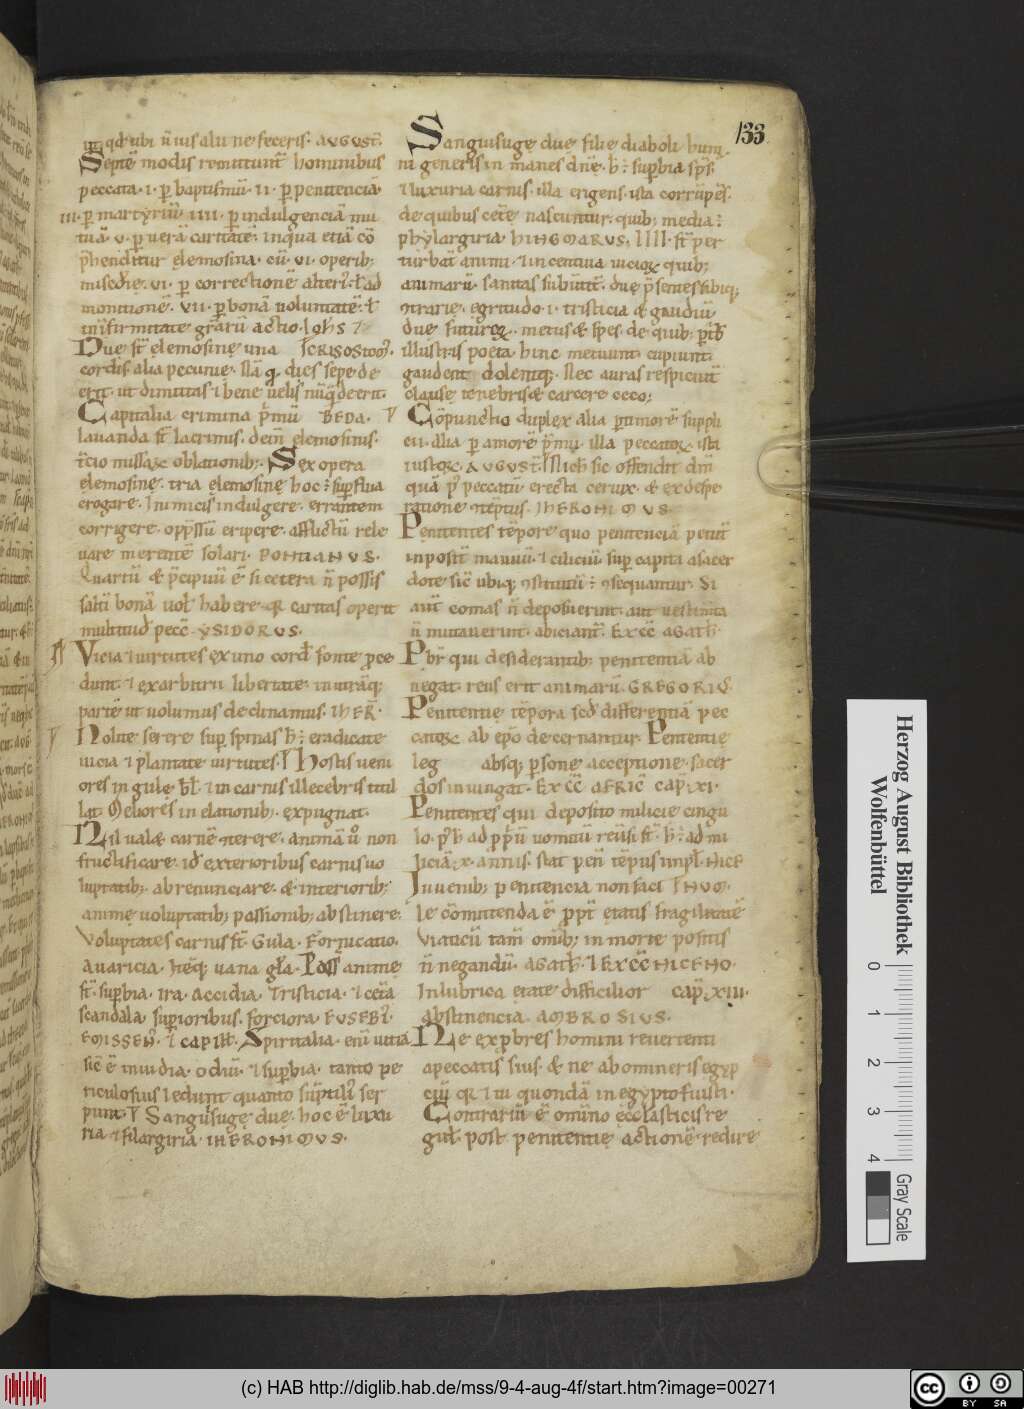 133
qd ubi ñ uis alii ne feceris. AUGUST.
Septē modis remittunt̄ hominibus
peccata. i. ꝑ baptismū. ii. ꝑ penitenciā
iii. ꝑ martyriū. iiii. ꝑ indulgenciā mu
tuā. v. ꝑ uerā caritatē. in qua etiā cō
p̄henditur elemosina. cū. vi. operib;
misc̄die. vi. ꝑ correctionē alteri. ł ad
monitionē. vii. ꝑ bonā uoluntatē. ł
in infirmitate gr̄arū actio. Ioħs
Due st̄ elemosinę una CRISOSTOM.
cordis. alia pecunie. Nā dies sepe de
erit. ut dimittas. bene uelis nūq̄ deerit.
Capitalia crimina p̄mū BEDA.
lauanda st̄ lacrimis. dein elemosinis.
t̄cio missaꝝ oblationib;. Sex opera
elemosinę. tria elemosinę hoc: sup̄flua
erogare. Inimicis indulgere. errantem
corrigere. opp̄ssū eripere. afflictū rele
uare merentē solari. PONTIANUS.
Quartū & p̄cipuū ē si cetera ñ possis
saltī bonā uol habere. caritas operit
multitud pecc̄. YSIDORUS.
Vicia ⁊ uirtutes ex uno cord fonte ꝓce
dunt. ⁊ ex arbitrii libertate. in utrāq;
partē ut uolumus declinamus. IHER.
Nolite serere sup spinas h: eradicate
uicia ⁊ plantate uirtutes. Hostis ueni
ores in gule ⁊ in carnis illecebris titil
lat. Meliores in elationib; expugnat.
Nil ualꝫ carnē terere. animā ů non
fructificare. id exterioribus carnis uo
luptatib; abrenunciare. & interiorib;
animę uoluptatib; passionib; abstinere.
Voluptates carnis st̄. Gula. Fornicatio.
Auaricia. Iteq; uana gła. Poss animę
st̄. Sup̄bia. Ira. Accidia. Tristicia. ⁊ cet̄a
scandala. superioribus. forciora. EUSEBI.
EMISSEN. Spiritalia. enī uitia
sic ē inuidia. odiū. ⁊ sup̄bia. tanto pe
riculosius ledunt quanto suptili ser
punt. Sanguisugę due. hoc ē luxu
ria. ⁊ filargiria. IHERONIMUS.
Sanguisugę duę filię diaboli hum
ni generis inmanes dn̄e. h: sup̄bia sp̄s.
⁊ luxuria carnis. illa erigens. ista corrūpes.
de quibus cet̄e nascuntur: quib; media:
phylargiria. HINGMARUS. IIII. st̄ per
turbat̄ animi. ⁊ incentiua uicioꝝ quib;
animarū. sanitas subūtit̄. due p̄sentes sibiq;
ꝯtrarie. egritudo. i. tristicia & gaudiū
duę futuręꝝ. metus & spes. de quib; p̄tb
illustris poeta. hinc metuunt. cupiunt.
gaudent dolentq;. Nec auras respiciunt
clausę tenebris & carcere ceco;
Cōpunctio duplex alia ꝑ timorē suppli
cii. alia ꝑ amorē p̄mii. illa peccatoꝝ. ista
iustoꝝ. AUGUST. Nichil sic offendit dm̄
quā p̄ peccatū erecta ceruix. & ex despe
ratione ꝯtēptus. IHERONIMUS.
Penitentes tēpore quo penitenciā petūt
inpositi manuū. ⁊ ciliciū. sup capita a sacer
dote sic̄ ubiq; ꝯstitutū: ꝯsequantur. Si
aut̄ comas ñ deposuerint. aut uestim̄ta
ñ mutauerint. abiciant̄. EX CC AGATH.
Pbr̄ qui desiderantib; penitentiā ab
negat. reus erit animarū. GREGORIUS.
Penitentię tēpora scd differentiā pec
catoꝝ ab epō decernantur. Penitentię
leg absq; ꝑsone acceptione. sacer
dos iniungat. EX CC AFRIC cap. xi.
Penitentes qui deposito milicie cingu
lo. ad mi
liciā. x. annis. stat
Iuuenib; penitencia non faci
le cōmittenda ē ꝓpt̄ etatis fragilitatē
Viaticū tam̄ omīb; in morte positis
ñ negandū. AGATH. ⁊ EX CC NICENO.
In lubrica etate difficilior cap. xiii.
abstinencia. AMBROSIUS.
Ne exprobres homini reuertenti
a peccatis suis. & ne abomineris egyp
ciū quia ⁊ tu quondā in egypto fuisti.
Contrariū ē omīno ecclasticis re
gul. post penitentię actionē. redire
Herzog August Bibliothek
Wolfenbüttel
0 1 2 3 4
Gray Scale
(c) HAB http://diglib.hab.de/mss/9-4-aug-4f/start.htm?image=00271
cc BY SA